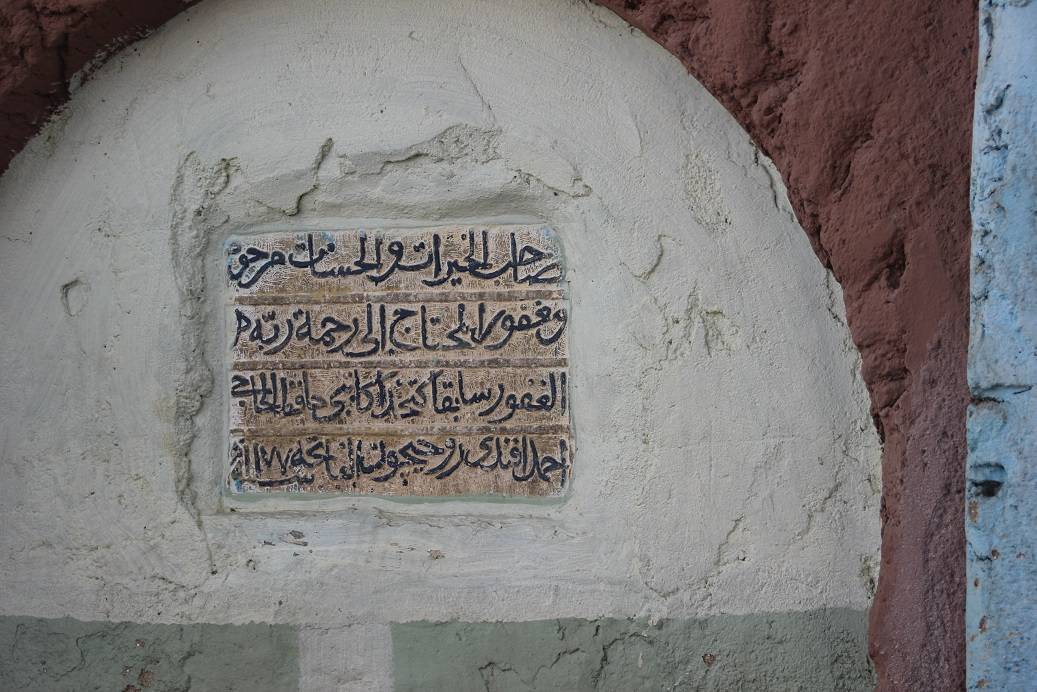 صاحب الخيرات والحسنات مرحو
ومغفور المحتاج إلى رحمة ربّه
الغفور سابقا كتخدا كاتبى حافظ الحاج
احمد افندى روحيچون الفاتحه سنه ١١٧٧